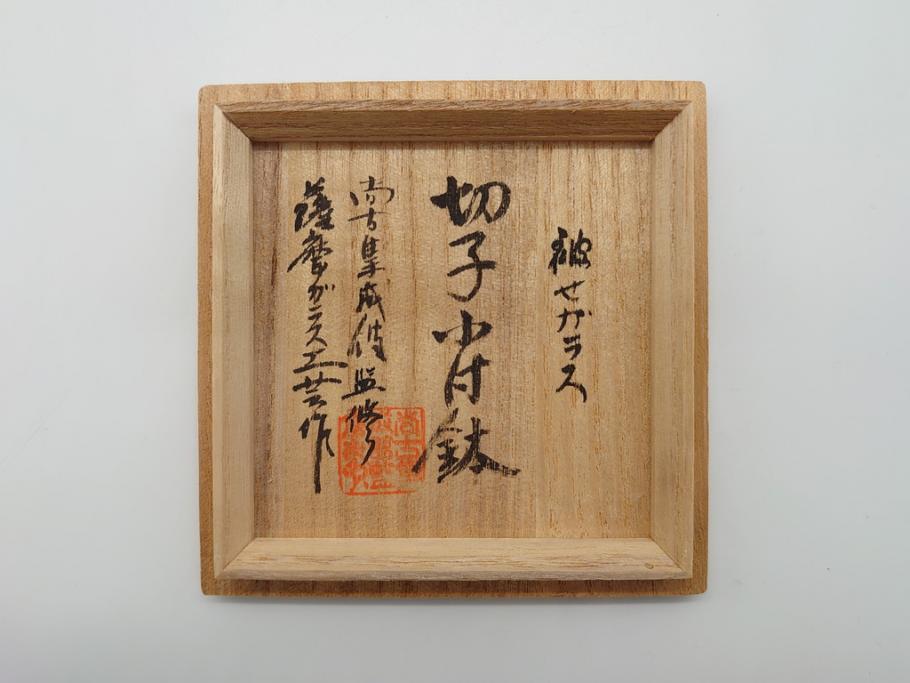 被せガラス
切子小付鉢
尚古集成館監修
薩摩ガラス工芸作